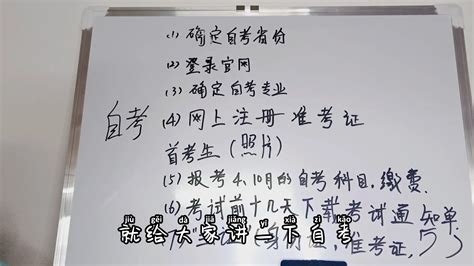 自考
(1) 确定自考省份
(2) 登录官网
(3) 确定自考专业
(4) 网上注册准考证
首考生(照片)
(5) 报考4、10月的自考科目,缴费
(6) 考试前十几天下载考试通知单
准考证,
jiù gěi dà jiā jiǎng yī xià zì kǎo
就给大家讲一下自考